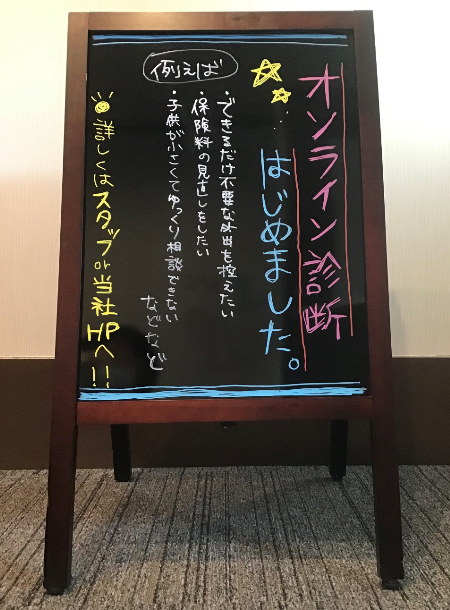 オンライン診断
はじめました。
例えば
・できるだけ不要な外出を控えたい
・保険料の見直しをしたい
・子供が小さくてゆっくり相談できない
などなど
詳しくはスタッフor当社HPへ!!